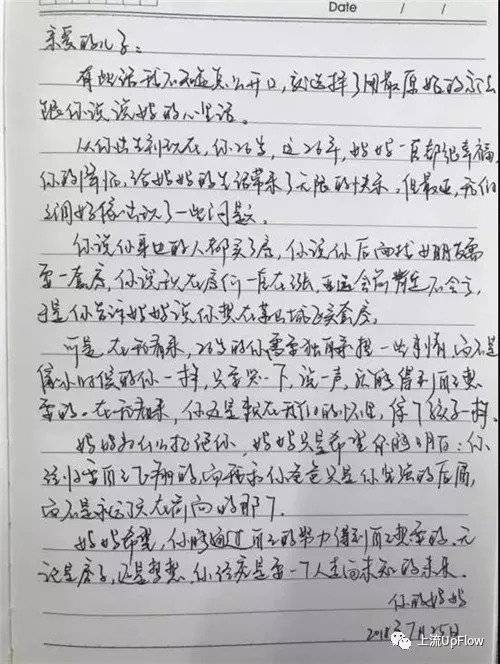 Date / /
亲爱的儿子:
有些话我不知道怎么开口,就选择了用最原始的方法
跟你说说妈妈的心里话。
从你出生到现在,你26岁,这26年,妈妈一直都很幸福,
你的降临,给妈妈的生活带来了无限的快乐,但最近,我们
之间好像出现了一些问题。
你说你身边的人都买了房,你说你后面找女朋友需
要一套房,你说现在房价一直在涨,
于是你告诉妈妈说你想在买套房。
可是在我看来,26岁的你需要独自承担一些事情,而不是
像小时候的你一样,只要哭一下,说一声,就能得到自己想
要的。在我看来,你还是躲在我们的怀里,像个孩子一样。
妈妈为什么拒绝你,妈妈只是希望你能明白:你
终归要自己飞翔的,而我和你爸爸只是你坚强的后盾,
而不是永远只在前面的那个。
妈妈希望,你能通过自己的努力得到自己想要的,无
论是房子,还是梦想,你终究是要一个人走向未知的未来。
你的妈妈
2018年7月25日
上流UpFlow